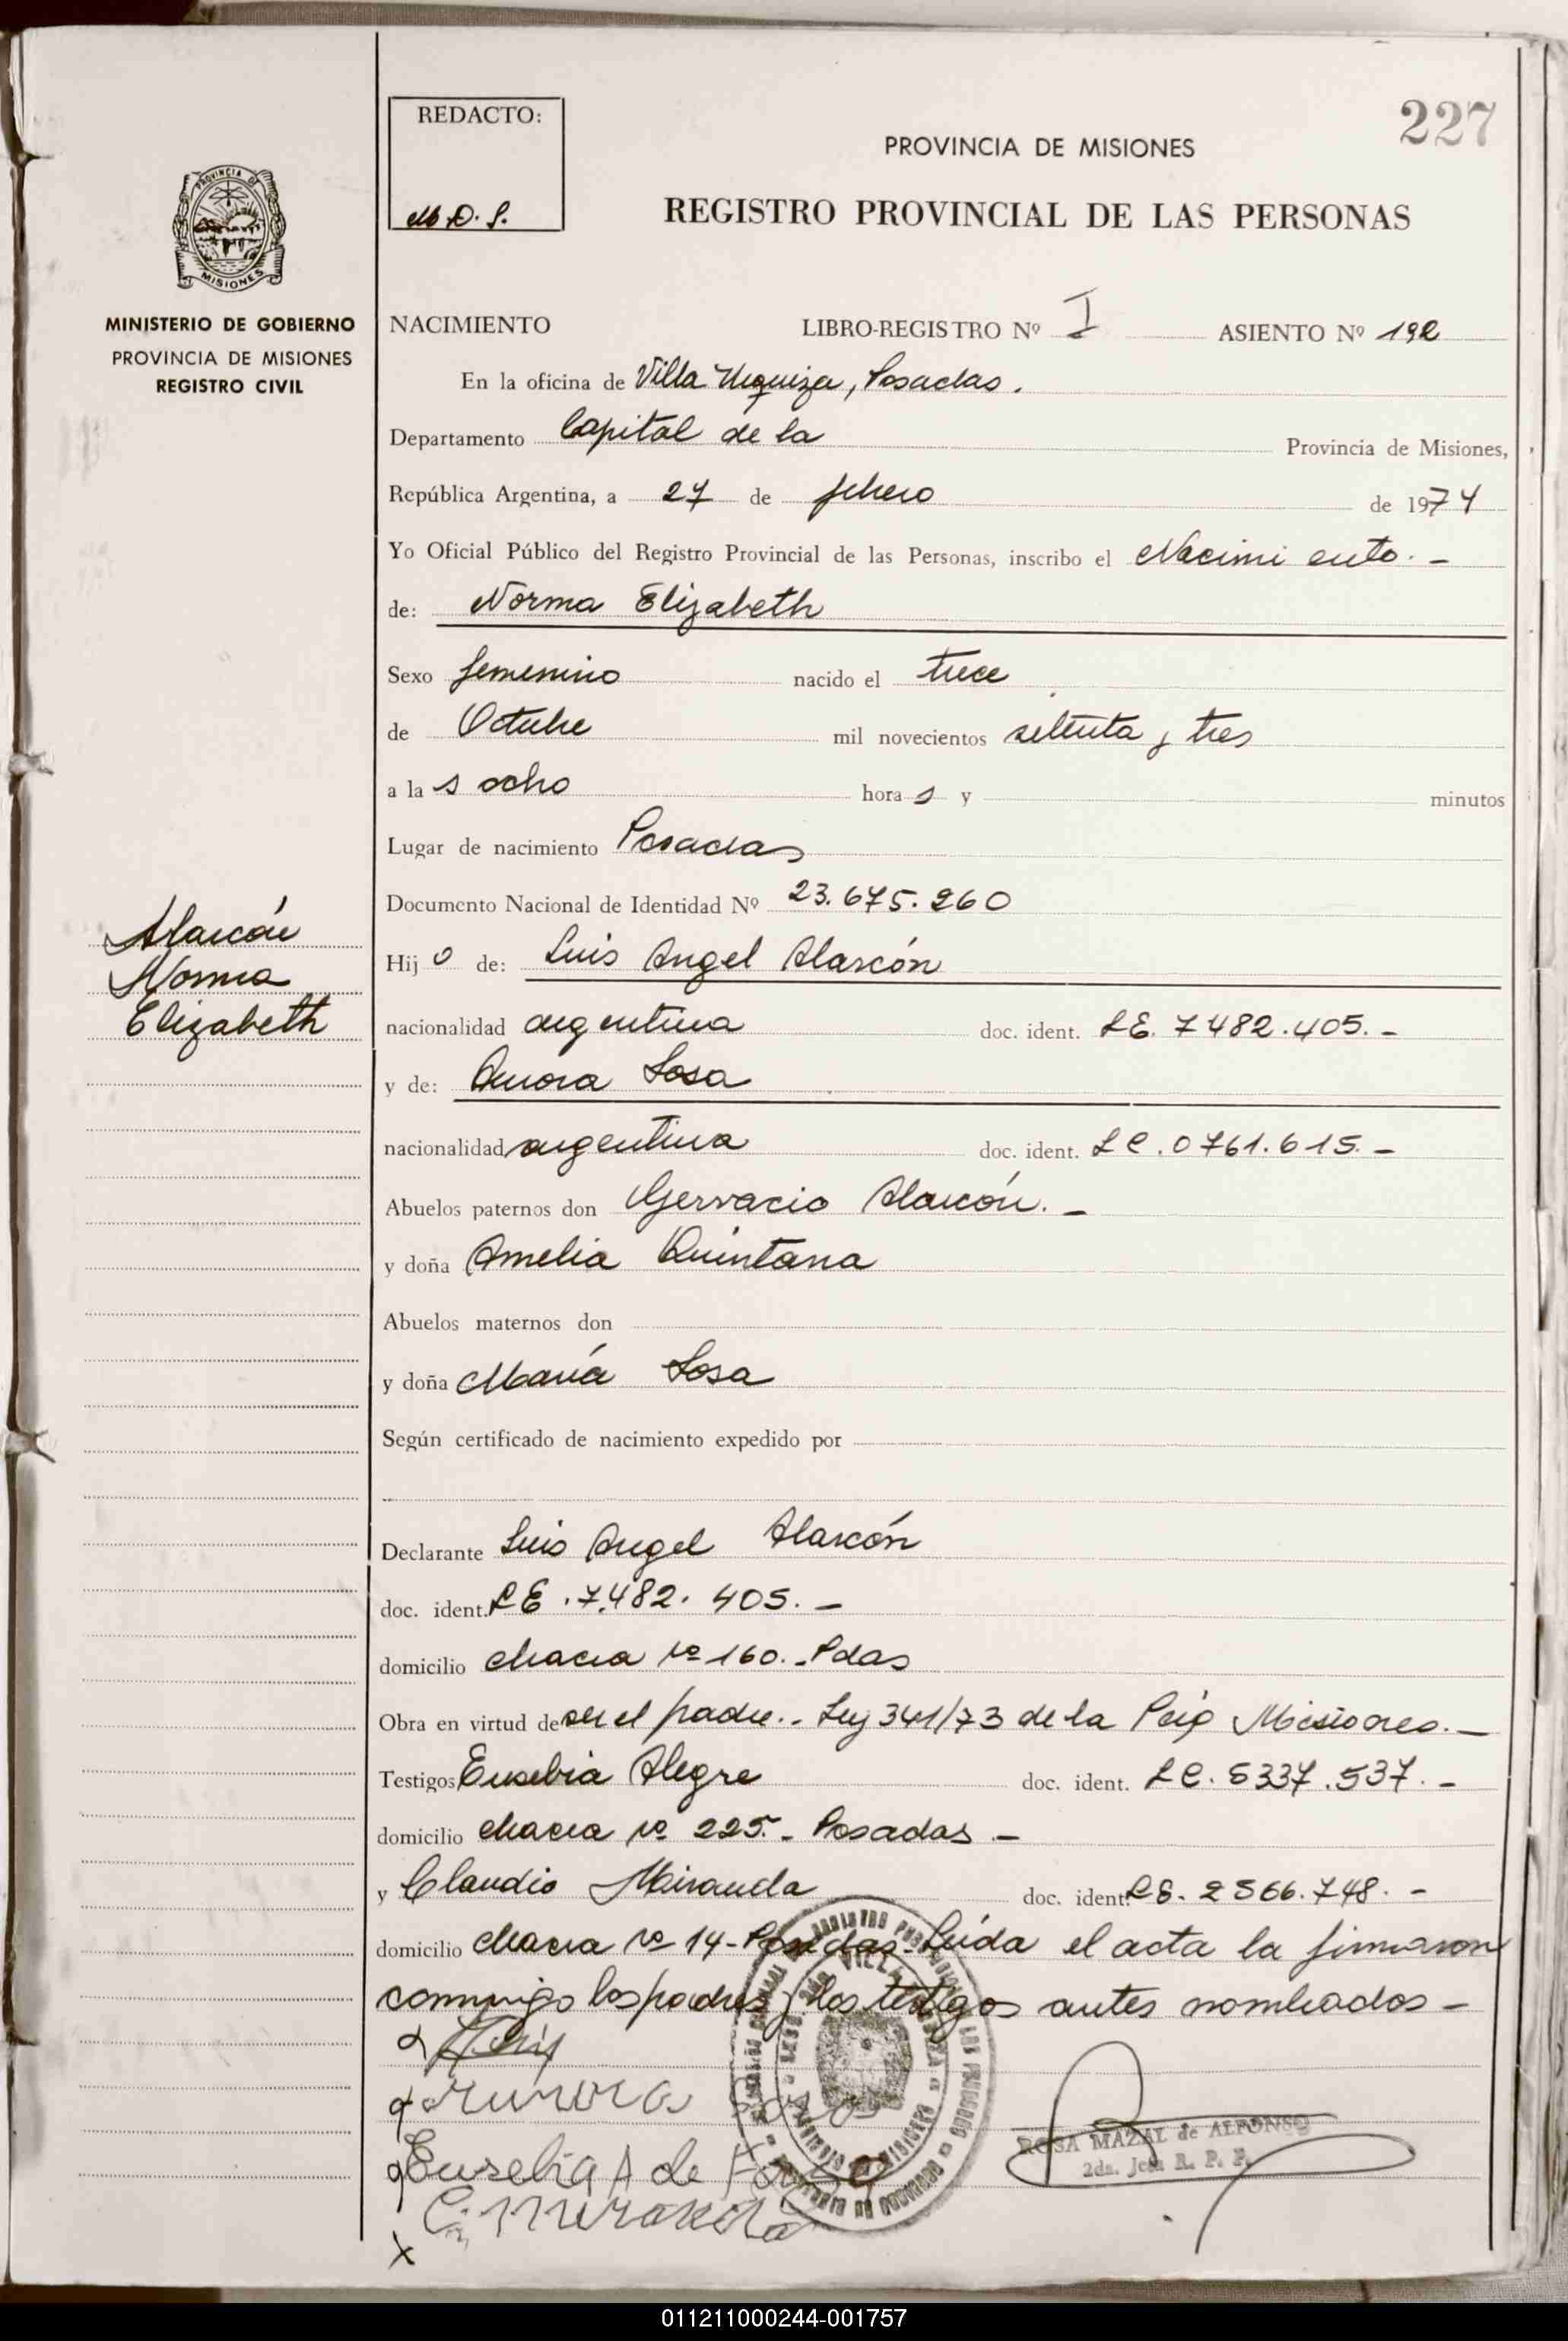 227
REDACTO:
M.D.S.
PROVINCIA DE MISIONES
REGISTRO PROVINCIAL DE LAS PERSONAS
PROVINCIA DE
MISIONES
MINISTERIO DE GOBIERNO
PROVINCIA DE MISIONES
REGISTRO CIVIL
NACIMIENTO LIBRO-REGISTRO Nº I ASIENTO Nº 192
En la oficina de Villa Urquiza, Posadas.
Departamento Capital de la Provincia de Misiones,
República Argentina, a 27 de febrero de 1974
Yo Oficial Público del Registro Provincial de las Personas, inscribo el Nacimiento.-
de: Norma Elizabeth
Sexo femenino nacido el trece
de Octubre mil novecientos setenta y tres
a las ocho horas y minutos
Lugar de nacimiento Posadas
Documento Nacional de Identidad Nº 23.675.260
Alarcón
Norma
Elizabeth
Hijo de: Luis Angel Alarcón
nacionalidad argentina doc. ident. LE. 7482.405.-
y de: Aurora Sosa
nacionalidad argentina doc. ident. LC.0761.615.-
Abuelos paternos don Gervacio Alarcón.-
y doña Amelia Quintana
Abuelos maternos don
y doña María Sosa
Según certificado de nacimiento expedido por
Declarante Luis Angel Alarcón
doc. ident. LE.7.482.405.-
domicilio chacra nº 160.-Pdas
Obra en virtud de ser el padre.- Ley 341/73 de la Pcia Misiones.-
Testigos Eusebia Alegre doc. ident. LC. 5337.537.-
domicilio chacra nº 225.- Posadas.-
y Claudio Miranda doc. ident. LE. 2566.748.-
domicilio chacra nº 14-Posadas-Leída el acta la firmaron
conmigo los padres y los testigos antes nombrados-
Aurora Sosa
Eusebia A de
C. Miranda
x
ROSA MAZAL de ALFONSO
2da. Jefa R. P. P.
011211000244-001757